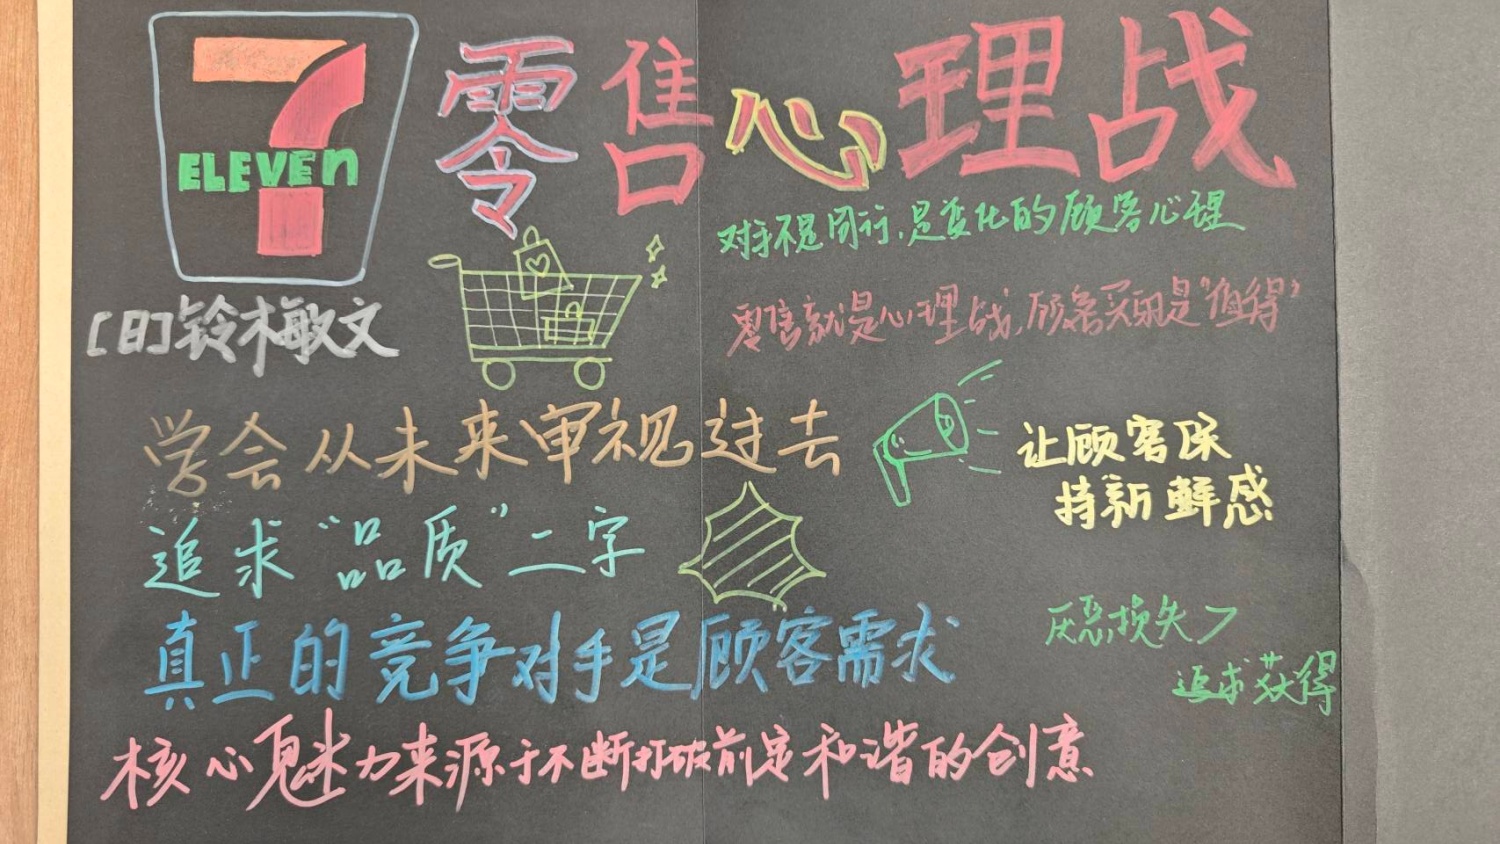 7
ELEVEn
零售心理战
对手不是同行,是变化的顾客心理
[日]铃木敏文
零售就是心理战,顾客买的是“值得”
学会从未来审视过去
让顾客保
持新鲜感
追求“品质”二字
真正的竞争对手是顾客需求
厌恶损失>
追求获得
核心魅力来源于不断打破前定和谐的创意